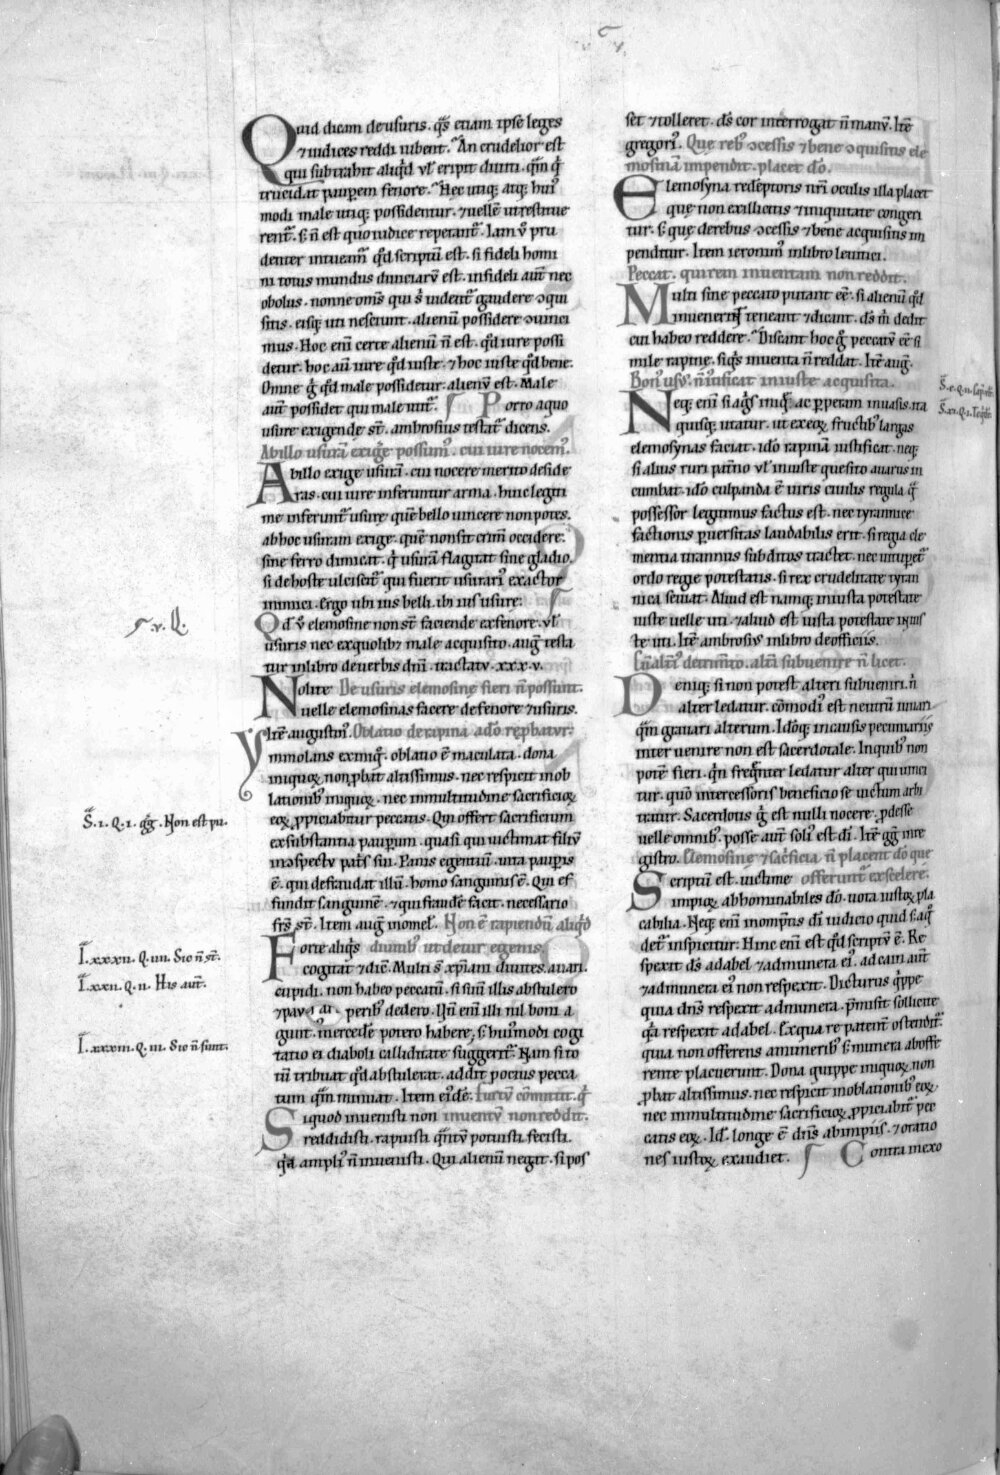 Quid dicam de usuris. q̄s etiam ipse leges
⁊ iudices reddi iubent. An crudelior est
qui subtrahit aliqd̓ vl̓ eripit diuiti. qͣm q̓
trucidat pauꝑem fenore. Hec utiq; atq; hui᾽
modi male utiq; possidentur. ⁊ uellē ut restitue
rent᷑. s; n̄ est quo iudice repetant᷑. Iam v̓ pru
denter intueam̄. qd̓ scriptū est. si fideli homi
ni totus mundus diuiciarū est. infideli aut̄ nec
obolus. nonne om̄s qui s᷒ uident᷑ gaudere ɔqui
sitis. eisq; uti nesciunt. alienū possidere ɔuinci
mus. Hoc enī certe alienū n̄ est. qd̓ iure possi
detur. hoc aut̄ iure qd̓ iuste. ⁊ hoc iuste qd̓ bene.
Omne g̓ qd̓ male possidetur. alienū est. Male
aut̄ possidet qui male utit᷑. Porro a quo
usure exigende st̄. ambrosius testat᷑ dicens.
Ab illo usurā exig̓e possum᾽. cui iure nocem᾽.
Ab illo exige usurā. cui nocere merito deside
ras. cui iure inferuntur arma. huic legiti
me inferunt᷑ usure. quē bello uincere non potes.
ab hoc usuram exige. quē non sit crim̄ occidere.
sine ferro dimicat. q̓ usurā flagitat sine gladio.
si de hoste ulciscit᷑ qui fuerit usurari᾽ exactor
inimici. Ergo ubi ius belli. ibi ius usure.
Qd̓ v̓ elemosine non st̄ faciende ex fenore. vl̓
usuris nec ex quolib; male acquisito. aug᷒ testa
tur in libro de verbis dn̄i. tractatu .xxx.v.
Nolite De usuris elemosine fieri n̄ possunt.
uelle elemosinas facere de fenore ⁊ usuris.
Itē augustin᾽. Oblatio de rapina a dō reꝑbatur.
Ymmolans ex iniq̓. oblatio ē maculata. dona
iniquoꝝ non ꝓbat altissimus. nec respicit in ob
lationib᾽ iniquoꝝ. nec in multitudine sacrificioꝝ
eoꝝ ꝓpiciabitur peccatis. Qui offert sacrificium
ex substantia pauꝑum. quasi qui uictimat filiū
in ɔspectu pat̓s sui. Panis egentiū. uita pauꝑis
ē. qui defraudat illū. homo sanguinis ē. Qui ef
fundit sanguinē. ⁊ qui fraudē facit. necessario
fr̄s st̄. Item aug᷒ in omel᾽. Non ē rapiendū aliqd̓
Forte aliq̓s diuitib᾽ ut detur egenis.
cogitat ⁊ dic̄. Multi s̄ xp̄iani diuites. auari.
cupidi. non habeo peccatū. si sum̄ illis abstulero
⁊ pauperib᾽ dedero. Un̄ enī illi nil boni a
gunt. mercedē potero habere. s; hui᾽modi cogi
tatio ei diaboli calliditate suggerit᷑. Nam si to
tū tribuat qd̓ abstulerat. addit pocius pecca
tum qͣm minuat. Item ei᾽dē. Furtū cōmittit. q̓
Si quod inuenisti non inuentū non reddit.
reddidisti. rapuisti. qͣntū potuisti fecisti.
q̓a ampli᾽ n̄ inuenisti. Qui alienū negat. si pos
set ⁊ tolleret. ds̄ cor interrogat n̄ manū. Itē
gregori᾽. Que reb᾽ ɔcessis ⁊ bene ɔquisitis ele
mosinam impendit. placet dō.
Elemosyna redēptoris nr̄i oculis illa placet
que non ex illicitis ⁊ iniquitate congeri
tur. s; que de rebus ɔcessis ⁊ bene acquisitis im
penditur. Item ieronim᾽ in libro leuitici.
Peccat. qui rem inuentam non reddit.
Multi sine peccato putant eē. si alienū qd̓
inuenerint teneant ⁊ dicant. ds̄ m̓ dedit
cui habeo reddere. Discant hoc g̓ peccatū eē si
mile rapine. siq̓s inuenta n̄ reddat. Itē aug᷒.
Bon᾽ us᾽ n̄ iustificat iniuste acquisita.
Neq; enī si aq̓s iniq̓ ac ꝑperam inuasis. ita
quisq; utatur. ut ex eoꝝ fructib᾽ largas
elemosynas faciat. idō rapinā iustificat. neq;
si alius ruri pat̓no vl̓ iniuste quesito auarus in
cumbat. idō culpanda ē iuris ciuilis regula q̓
possessor legitimus factus est. nec tyrannice
factionis ꝑuersitas laudabilis erit. si regia cle
mentia tirannus subditos tractet. nec uitupet᷑
ordo regie potestatis. si rex crudelitate tyran
nica seuiat. Aliud est namq; iniusta potestate
iuste uelle uti. ⁊ aliud est iusta potestate inius
te uti. Itē ambrosius in libro de officiis.
Cū alt̓i᾽ detrim̄to. alt̓i subuenire n̄ licet.
Deniq; si non potest alteri subueniri. n̓
alter ledatur. cōmodi᾽ est neutrū iuuari
qͣm grauari alterum. Idōq; in causis pecuniariis
inter uenire non est sacerdotale. In quib᾽ non
potē fieri. qͥn freq̄nter ledatur alter qui uinci
tur. quō intercessoris beneficio se uictum arbi
tratur. Sacerdotis g̓ est nulli nocere. ꝓdesse
uelle omnib᾽. posse aut̄ soli᾽ est di᾽. Itē gg᷒ in re
gistro. Elemosine ⁊ sac̓ficia n̄ placent dō que
Scriptū est. uictime offerunt᷑ ex scelere.
impioꝝ abhominabiles dō. uota iustoꝝ pla
cabilia. Neq; enī in omp̄tis di᾽ iudicio quid s; aq̓
det᷑ inspicitur. Hinc enī est qd̓ scriptū ē. Re
spexit ds̄ ad abel ⁊ ad munera ei᾽. ad cain aut̄
⁊ ad munera ei᾽ non respexit. Dicturus q̓ppe
quia dn̄s respexit ad munera. p̄misit sollicite
q̓a respexit ad abel. Ex qua re patent̄ ostendit᷑.
quia non offerens a munerib᾽ s; munera ab offe
rente placuerunt. Dona quippe iniquoꝝ non
ꝓbat altissimus. nec respicit in oblationib᾽ eoꝝ.
nec in multitudine sacrificioꝝ ꝓpiciabit᷑ pec
catis eoꝝ. Id᷒. longe ē dn̄s ab impiis. ⁊ oratio
nes iustoꝝ exaudiet. Contra in exo
.v. Q.
S̄. i. Q. i. gg᷒. Non est pu.
J̄. xxxii. Q. iiii. Sic n̄ st̄.
J̄. xxii. Q. ii. His aut̄.
J̄. xxxiii. Q. iii. Sic n̄ sunt.